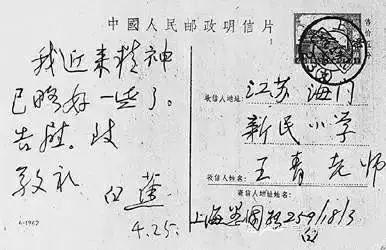 中國人民邮政明信片
我近来精神
已略好一些了。
告慰。
敬礼
白蕉
4.25.
收信人地址: 江苏海门
新民小学
收信人姓名: 王青老师
寄信人地址姓名:
上海 259/18/3
白